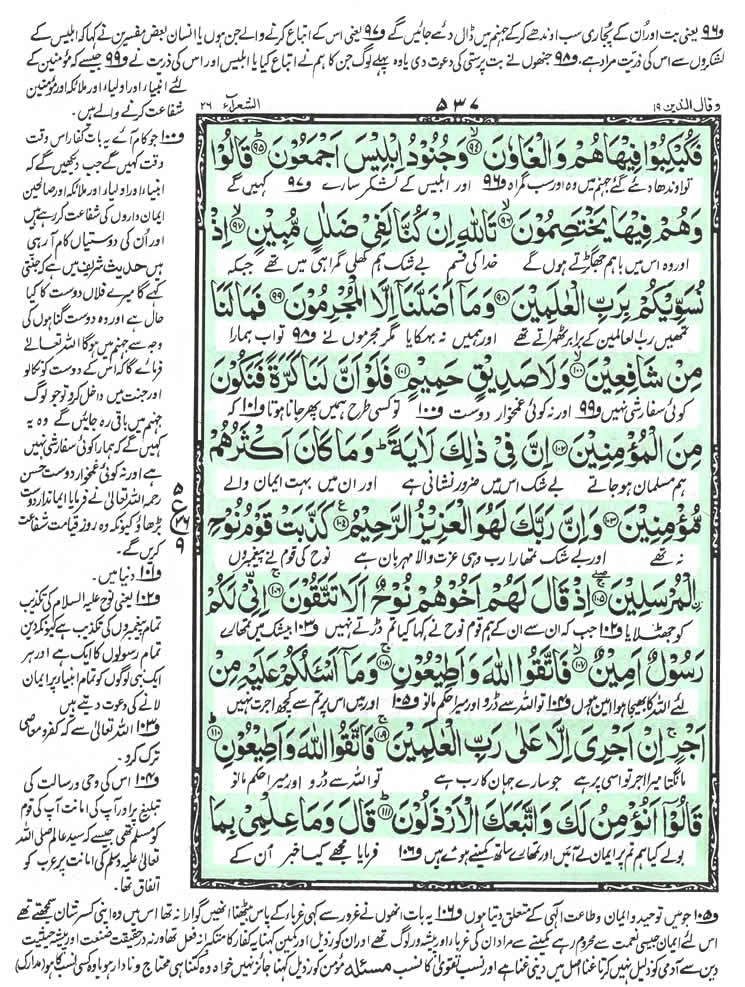 و۹۶ یعنی بت اور اُن کے پجاری سب اوندھے کرکے جہنم میں ڈال دئے جائیں گے و۹۷ یعنی اس کے اتباع کرنے والے جن ہوں یا انسان بعض مفسرین نے کہا کہ ابلیس کے
لشکروں سے اس کی ذریت مراد ہے۔ و۹۸ جنھوں نے بت پرستی کی دعوت دی یا وہ پہلے لوگ جن کا ہم نے اتباع کیا یا ابلیس اور اس کی ذریت نے و۹۹ جیسے کہ مؤمنین کے
لئے انبیاء اور اولیاء اور ملائکہ اور مؤمنین
شفاعت کرنے والے ہیں۔
و۱۰۰ جو کام آئے یہ بات کفار اس وقت
وقت کہیں گے جب دیکھیں گے کہ
انبیاء اور اولیاء اور ملائکہ اور صالحین
ایمان داروں کی شفاعت کر رہے ہیں
اور اُن کی دوستیاں کام آ رہی
ہیں حدیث شریف میں ہے کہ جنتی
کہے گا میرے فلاں دوست کا کیا
حال ہے اور وہ دوست گناہوں کی
وجہ سے جہنم میں ہوگا اللہ تعالےٰ
فرمائے گا کہ اس کے دوست کو نکالو
اور جنت میں داخل کرو تو جو لوگ
جہنم میں باقی رہ جائیں گے وہ یہ
کہیں گے کہ ہمارا کوئی سفارشی نہیں
ہے اور نہ کوئی غمخوار دوست حسن
رحمہ اللہ تعالیٰ نے فرمایا ایماندار دوست
بڑھاؤ کیونکہ وہ روز قیامت شفاعت
کریں گے۔
و۱۰۱ دنیا میں۔
و۱۰۲ یعنی نوح علیہ السلام کی تکذیب
تمام پیغمبروں کی تکذیب ہے کیونکہ دین
تمام رسولوں کا ایک ہے اور ہر
ایک نبی لوگوں کو تمام انبیاء پر ایمان
لانے کی دعوت دیتے ہیں
و۱۰۳ اللہ تعالیٰ سے کہ کفر و معاصی
ترک کرو۔
و۱۰۴ اس کی وحی و رسالت کی
تبلیغ پر اور آپ کی امانت آپ کی قوم
کو مسلم تھی جیسے کہ سید عالم صلی اللہ
تعالیٰ علیہ وسلم کی امانت پر عرب کو
اتفاق تھا۔
وقال الذین ۱۹ ۵۳۷ الشعرآء ۲۶
فَكُبْكِبُوْا فِیْهَا هُمْ وَ الْغَاوٗنَۙ۹۴ وَ جُنُوْدُ اِبْلِیْسَ اَجْمَعُوْنَؕ۹۵ قَالُوْا
تو اوندھا دئے گئے جہنم میں وہ اور سب گمراہ و۹۶ اور ابلیس کے لشکر سارے و۹۷ کہیں گے
وَ هُمْ فِیْهَا یَخْتَصِمُوْنَۙ۹۶ تَاللّٰهِ اِنْ كُنَّا لَفِیْ ضَلٰلٍ مُّبِیْنٍۙ۹۷ اِذْ
اور وہ اس میں باہم جھگڑتے ہوں گے خدا کی قسم بےشک ہم کھلی گمراہی میں تھے جبکہ
نُسَوِّیْكُمْ بِرَبِّ الْعٰلَمِیْنَ۹۸ وَ مَاۤ اَضَلَّنَاۤ اِلَّا الْمُجْرِمُوْنَ۹۹ فَمَا لَنَا
تمہیں رب العالمین کے برابر ٹھہراتے تھے اور ہمیں نہ بہکایا مگر مجرموں نے و۹۸ تو اب ہمارا
مِنْ شَافِعِیْنَۙ۱۰۰ وَ لَا صَدِیْقٍ حَمِیْمٍ۱۰۱ فَلَوْ اَنَّ لَنَا كَرَّةً فَنَكُوْنَ
کوئی سفارشی نہیں و۹۹ اور نہ کوئی غمخوار دوست و۱۰۰ تو کسی طرح ہمیں پھر جانا ہوتا و۱۰۱ کہ
مِنَ الْمُؤْمِنِیْنَ۱۰۲ اِنَّ فِیْ ذٰلِكَ لَاٰیَةًؕ وَ مَا كَانَ اَكْثَرُهُمْ
ہم مسلمان ہو جاتے بےشک اس میں ضرور نشانی ہے اور ان میں بہت ایمان والے
مُّؤْمِنِیْنَ۱۰۳ وَ اِنَّ رَبَّكَ لَهُوَ الْعَزِیْزُ الرَّحِیْمُ۱۰۴ كَذَّبَتْ قَوْمُ نُوْحِ
نہ تھے اور بےشک تمہارا رب وہی عزت والا مہربان ہے نوح کی قوم نے پیغمبروں
ِ۟الْمُرْسَلِیْنَۚۖ۱۰۵ اِذْ قَالَ لَهُمْ اَخُوْهُمْ نُوْحٌ اَلَا تَتَّقُوْنَۚ۱۰۶ اِنِّیْ لَكُمْ
کو جھٹلایا و۱۰۲ جب کہ ان سے ان کے ہم قوم نوح نے کہا کیا تم ڈرتے نہیں و۱۰۳ بیشک میں تمہارے
رَسُوْلٌ اَمِیْنٌۙ۱۰۷ فَاتَّقُوا اللّٰهَ وَ اَطِیْعُوْنِۚ۱۰۸ وَ مَاۤ اَسْــٴَـلُكُمْ عَلَیْهِ مِنْ
لئے اللہ کا بھیجا ہوا امین ہوں و۱۰۴ تو اللہ سے ڈرو اور میرا حکم مانو و۱۰۵ اور میں اس پر تم سے کچھ اجرت نہیں
اَجْرٍۚ اِنْ اَجْرِیَ اِلَّا عَلٰى رَبِّ الْعٰلَمِیْنَۚ۱۰۹ فَاتَّقُوا اللّٰهَ وَ اَطِیْعُوْنِؕ۱۱۰
مانگتا میرا اجر تو اسی پر ہے جو سارے جہان کا رب ہے تو اللہ سے ڈرو اور میرا حکم مانو
قَالُوْۤا اَنُؤْمِنُ لَكَ وَ اتَّبَعَكَ الْاَرْذَلُوْنَؕ۱۱۱ قَالَ وَ مَا عِلْمِیْ بِمَا
بولے کیا ہم تم پر ایمان لے آئیں اور تمہارے ساتھ کمینے ہوئے ہیں و۱۰۶ فرمایا مجھے کیا خبر اُن کے
۵
ع
۳۶
۹
و۱۰۵ جو میں توحید و ایمان و طاعت الٰہی کے متعلق دیتا ہوں و۱۰۶ یہ بات انھوں نے غرور سے کہی غرباء کے پاس بیٹھنا انھیں گوارا نہ تھا اس میں وہ اپنی کسر شان سمجھتے تھے
اس لئے ایمان جیسی نعمت سے محروم رہے کمینے سے مراد ان کی غرباء اور پیشہ ور لوگ تھے اور ان کو رذیل اور کمین کہنا یہ کفار کا متکبرانہ فعل تھا ورنہ درحقیقت صنعت اور پیشہ حیثیت
دین سے آدمی کو ذلیل نہیں کرتا غنا اصل میں دینی غنا ہے اور نسب تقویٰ کا نسب مسئلہ مؤمن کو رذیل کہنا جائز نہیں خواہ وہ کتنا ہی محتاج و نادار ہو یا وہ کسی نسب کا ہو (مدارک)